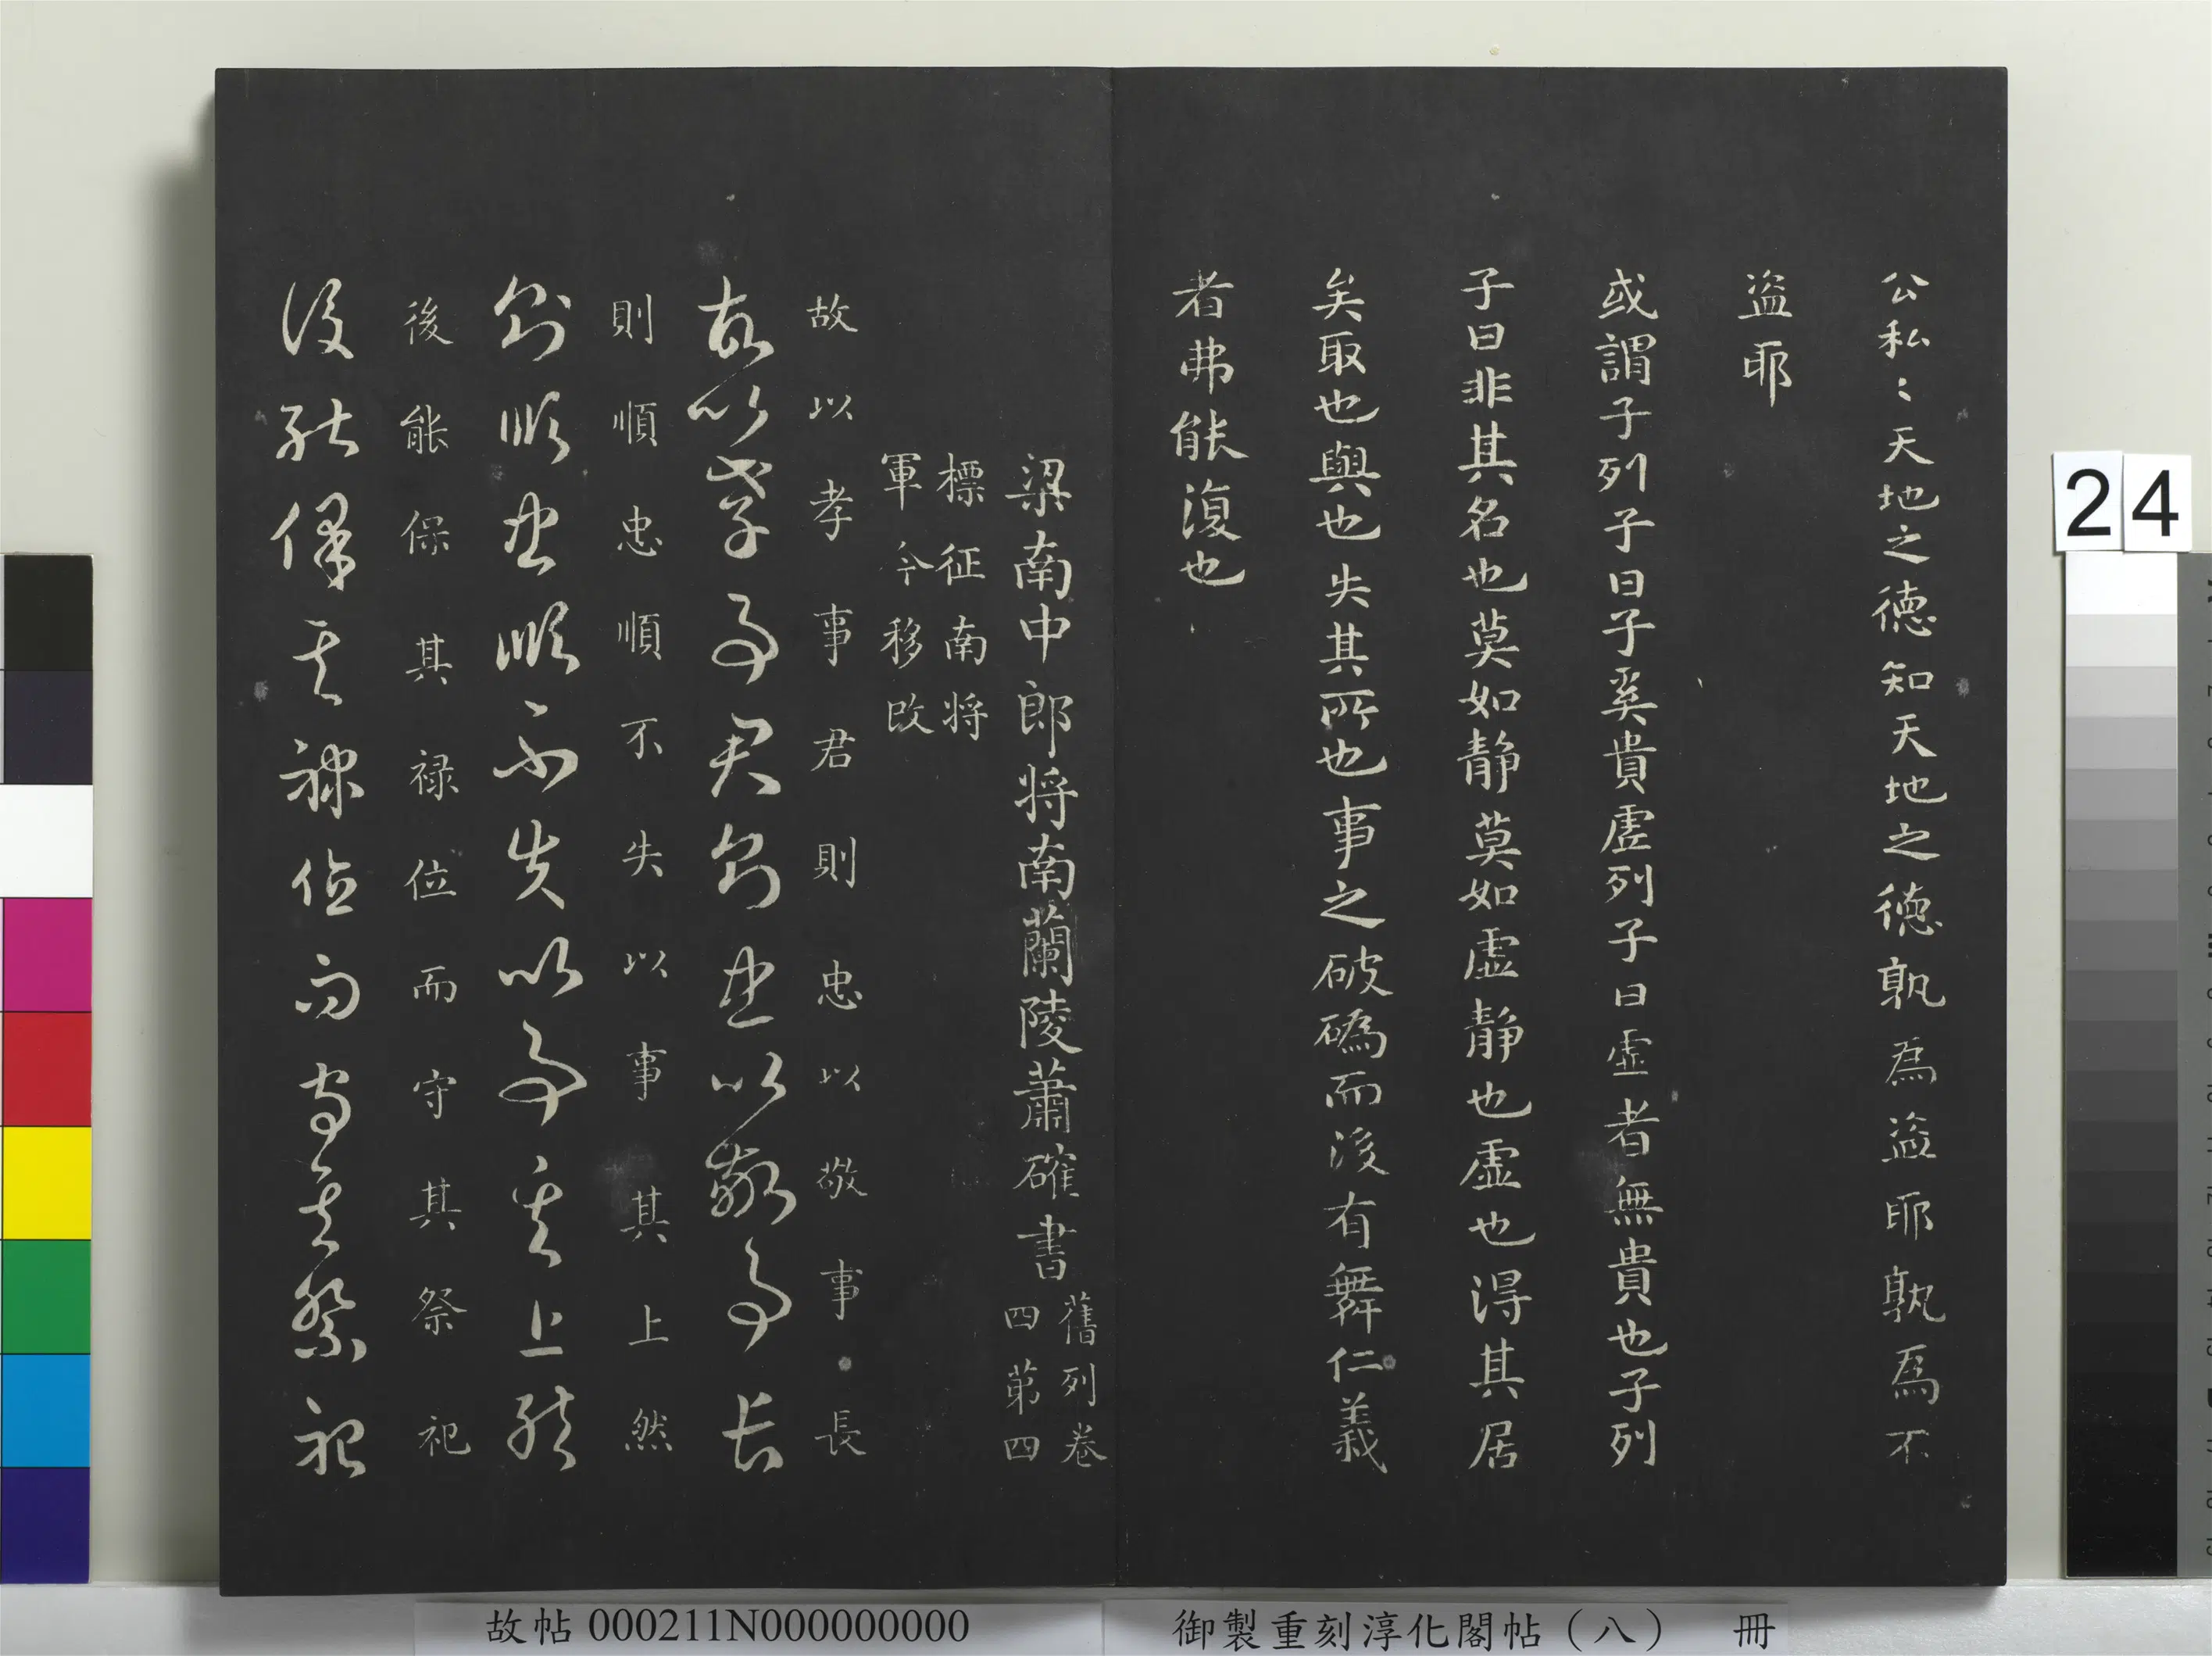 公私〻天地之德知天地之德孰為盗耶孰為不
盗耶
或謂子列子曰子奚貴虛列子曰虛者無貴也子列
子曰非其名也莫如静莫如虛静也虛也得其居
矣取也與也失其所也事之破䃣而後有舞仁義
者弗能復也
梁南中郎将南蘭陵蕭確書
舊列卷
四苐四
標征南将
軍今移改
故以孝事君則忠以敬事長
故以孝事君則忠以敬事長
則順忠順不失以事其上然
則順忠順不失以事其上然
後能保其禄位而守其祭祀
後能保其禄位而守其祭祀
24
故帖 000211N000000000
御製重刻淳化閣帖（八） 冊